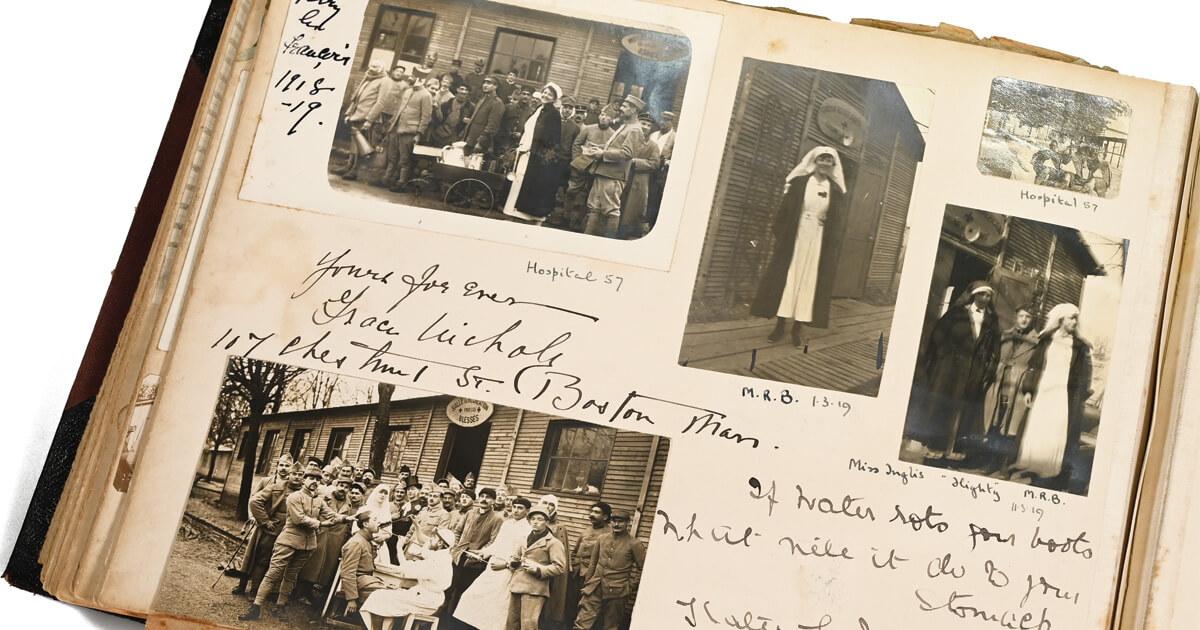 1918
-19.
Hospital 57
Hospital 57
Yours for ever
Grace Nichols
107 Chestnut St. (Boston Mass.
M.R.B. 1-3-19
Miss Inglis "Flighty" M.R.B.
11-3-19
BLESSES
If water rots your boots
What will it do to your
Stomach